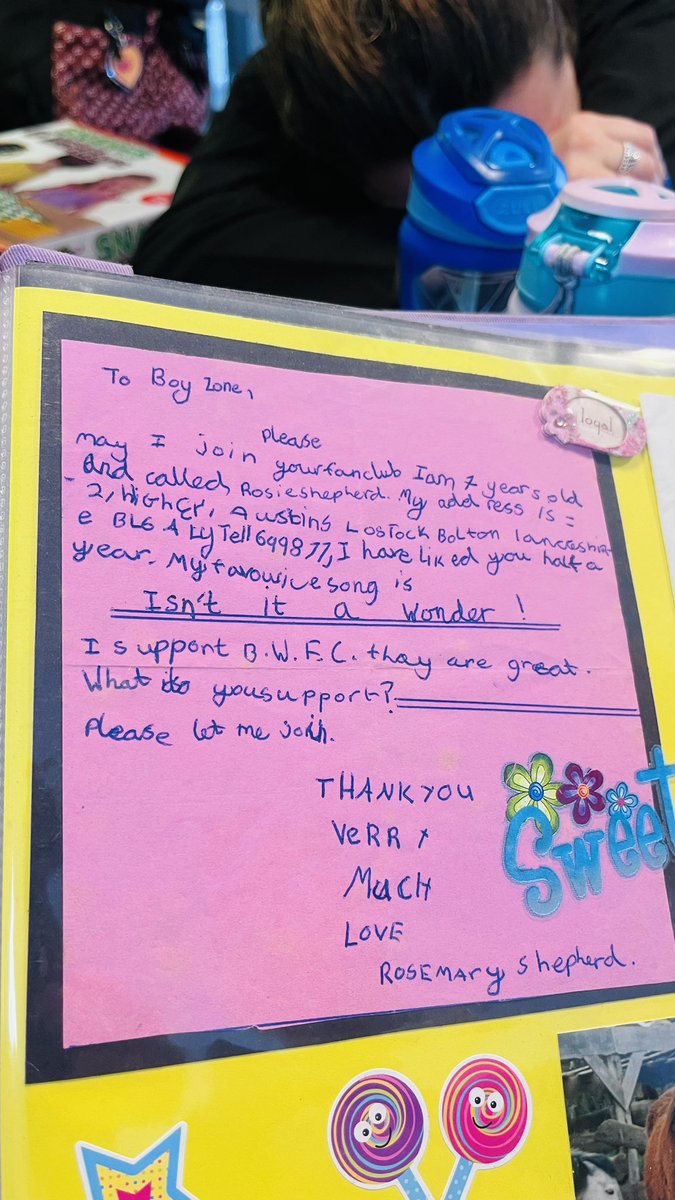 To Boy Zone,
please
may I join your fanclub I am 7 years old
and called, Rosie shepherd. My add ress is =
2, higher, Austins Lostock Bolton lancashir
e BL6 4 Ly Tell 699877, I have liked you half a
year. My favourice song is
Isn't it a wonder!
I support B.W.F.C. thay are great.
What do you support?
please let me join.
THANK YOU
VERRY
MUCH
LOVE
ROSEMARY shepherd.
loyal
Sweet